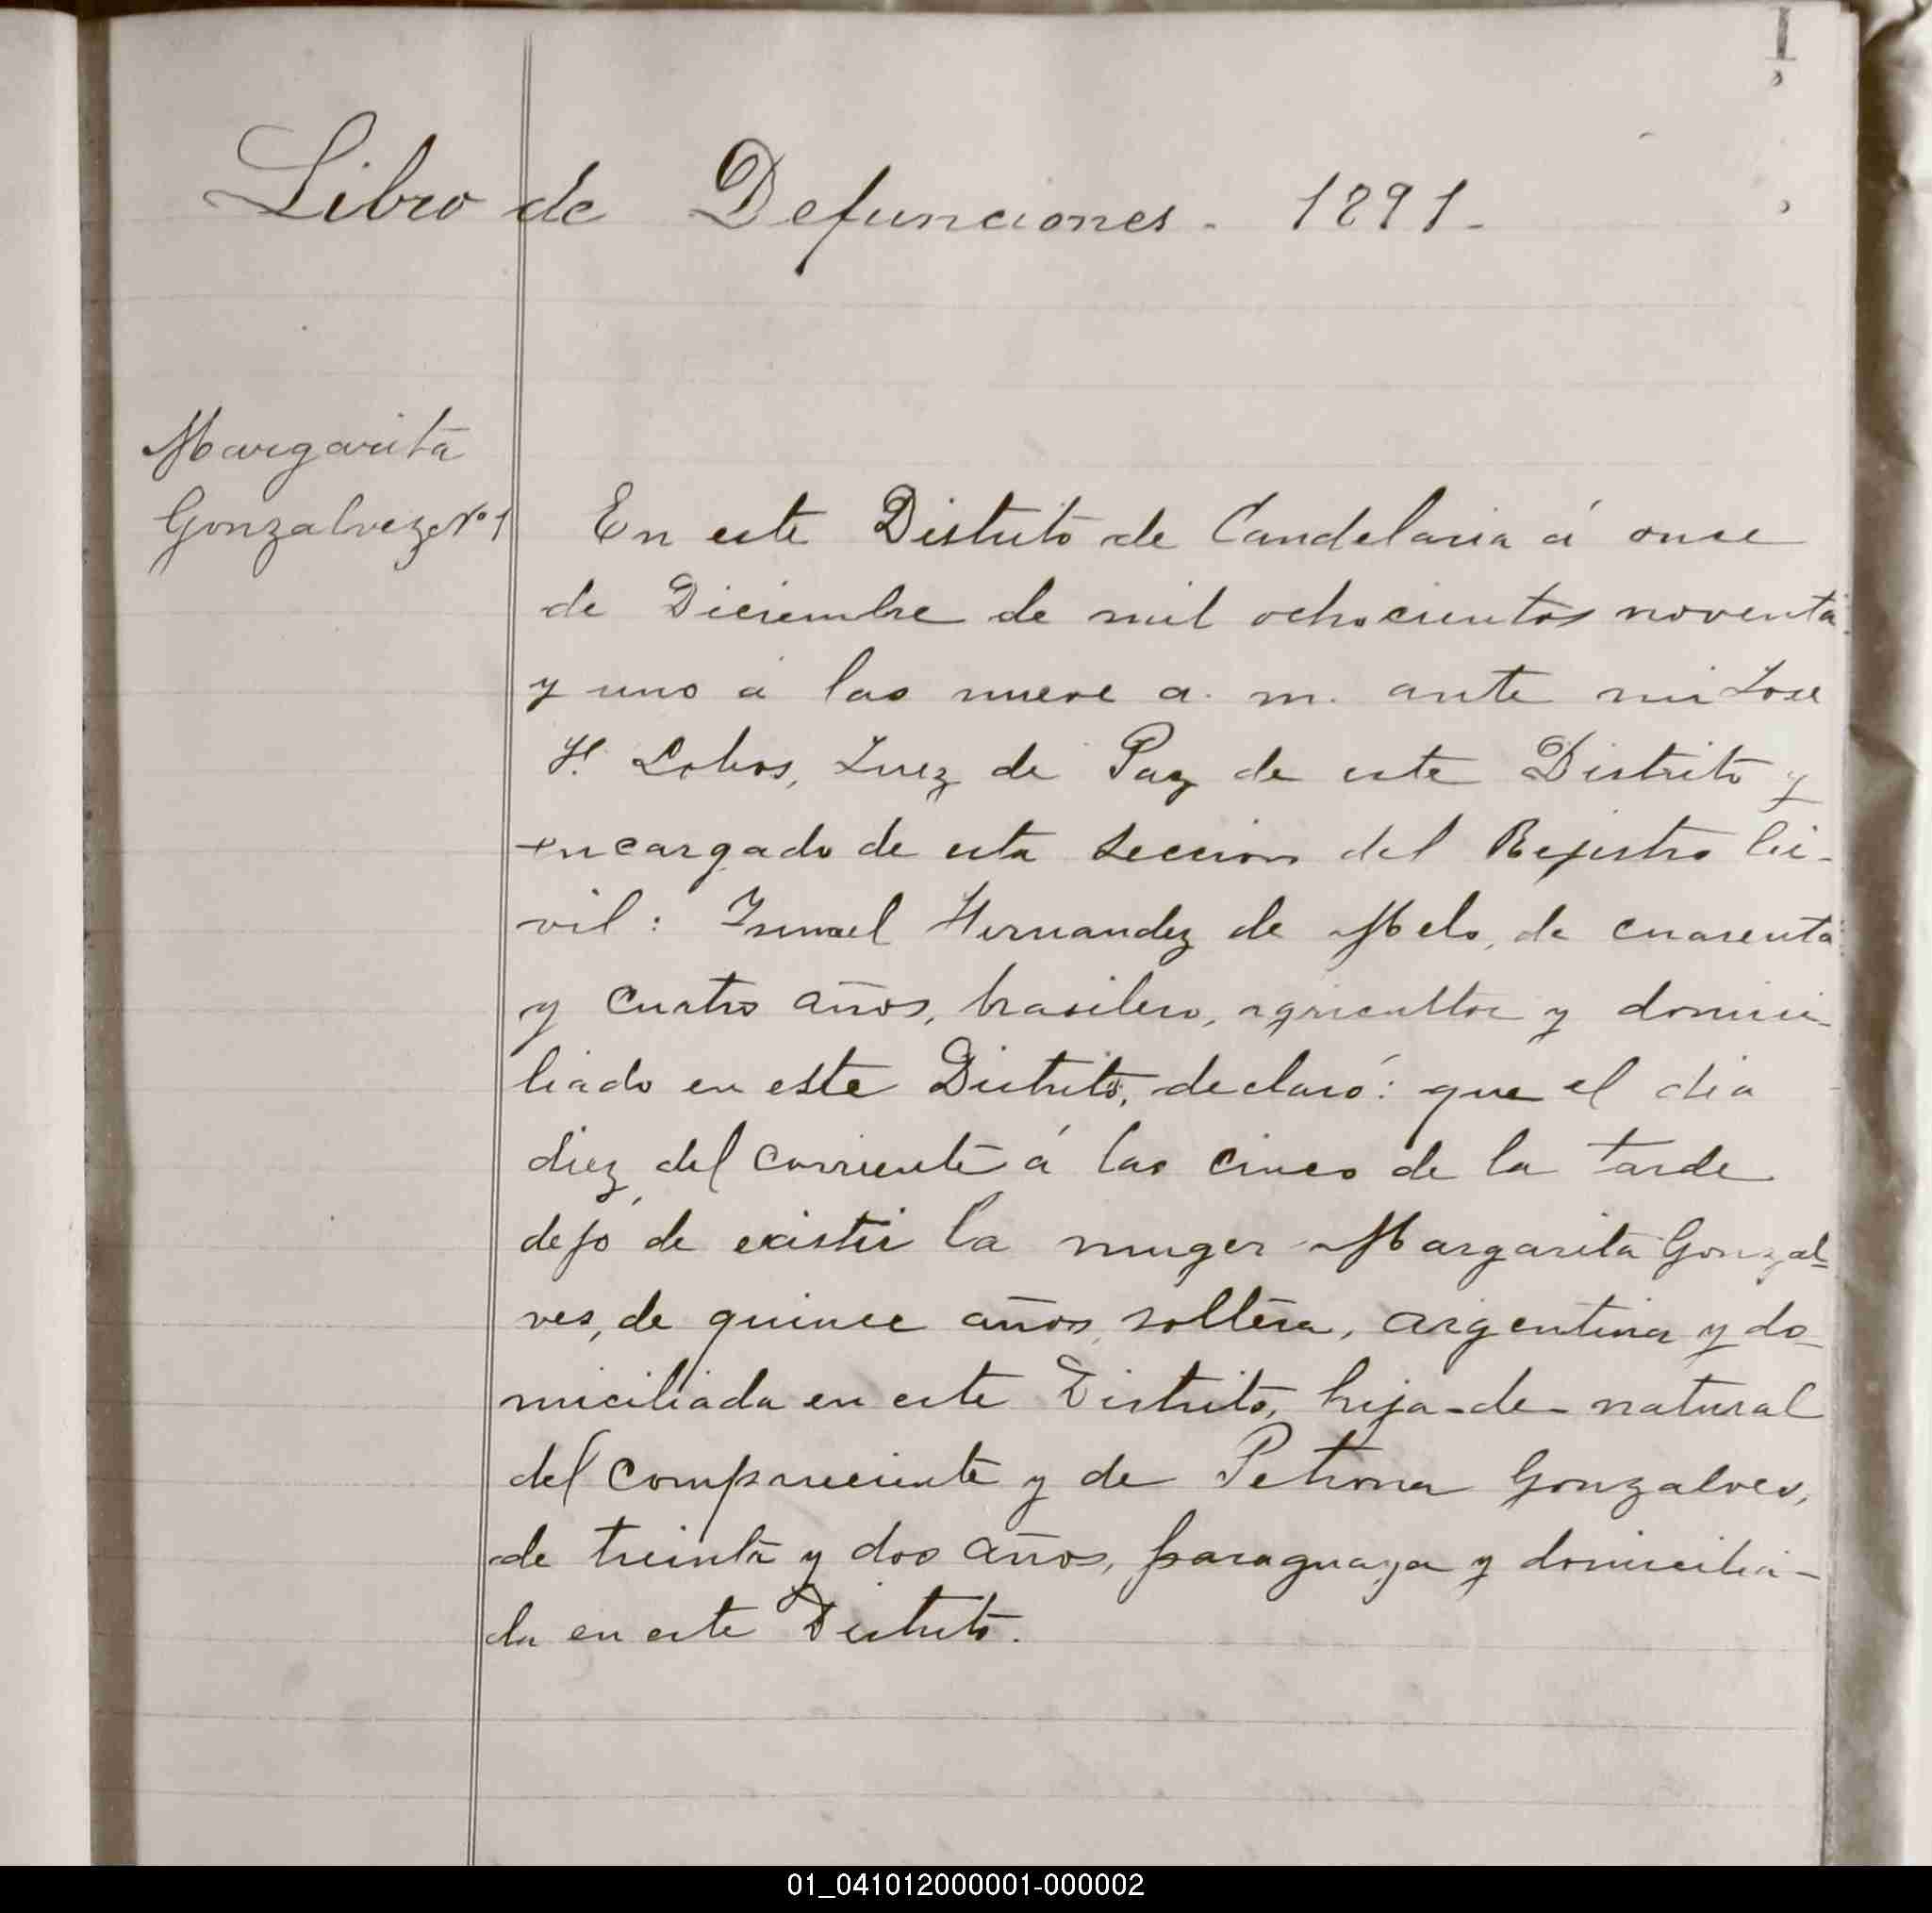 1
Libro de Defunciones - 1891 -
Margarita
Gonzalvez Nº 1
En este Distrito de Candelaria á once
de Diciembre de mil ochocientos noventa
y uno á las nueve a. m. ante mi Jose
H. Lobos, Juez de Paz de este Distrito y
encargado de esta Seccion del Rejistro Ci-
vil: Ismael Hernandez de Melo, de cuarenta
y cuatro años, brasilero, agricultor y domici-
liado en este Distrito, declaró: que el dia
diez del corriente á las cinco de la tarde
dejó de existir la muger Margarita Gonzal=
ves, de quince años, soltera, argentina y do-
miciliada en este Distrito, hija-de-natural
del compareciente y de Petrona Gonzalves,
de treinta y dos años, paraguaya y domicilia-
da en este Distrito.
01_041012000001-000002